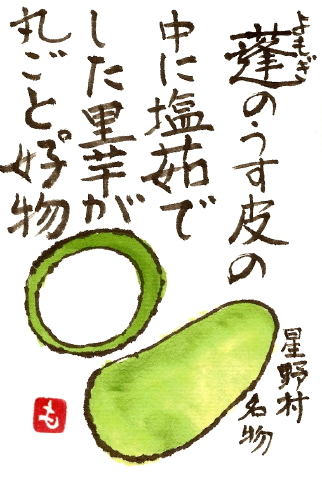 よもぎ
蓬のうす皮の
中に塩茹で
した里芋が
丸ごと好物
星野村
名物
も